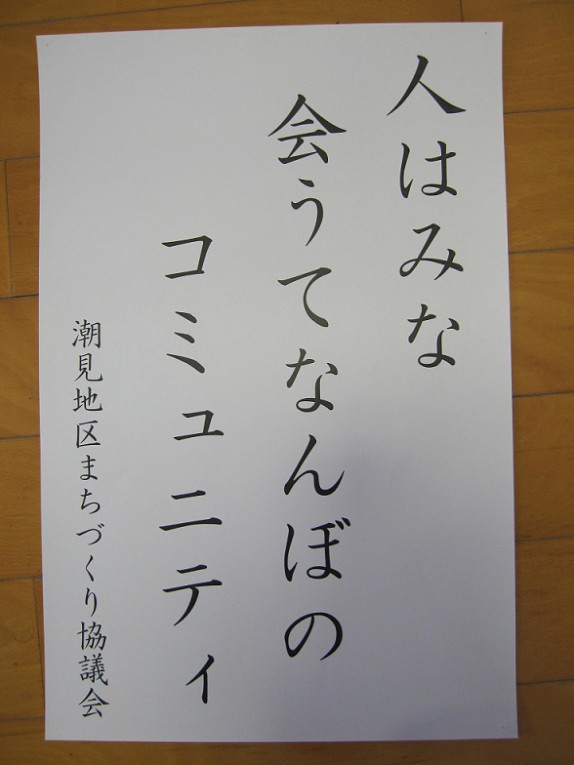 人はみな
会うてなんぼの
コミュニティ
潮見地区まちづくり協議会